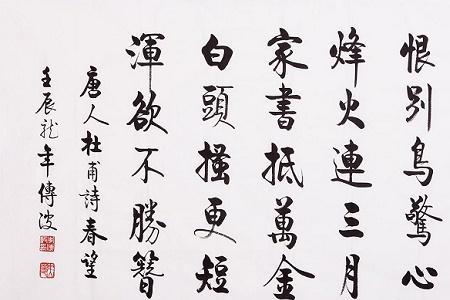 恨别鳥驚心
烽火連三月
家書抵萬金
白頭搔更短
渾欲不勝簪
唐人杜甫詩春望
壬辰龍年傳波